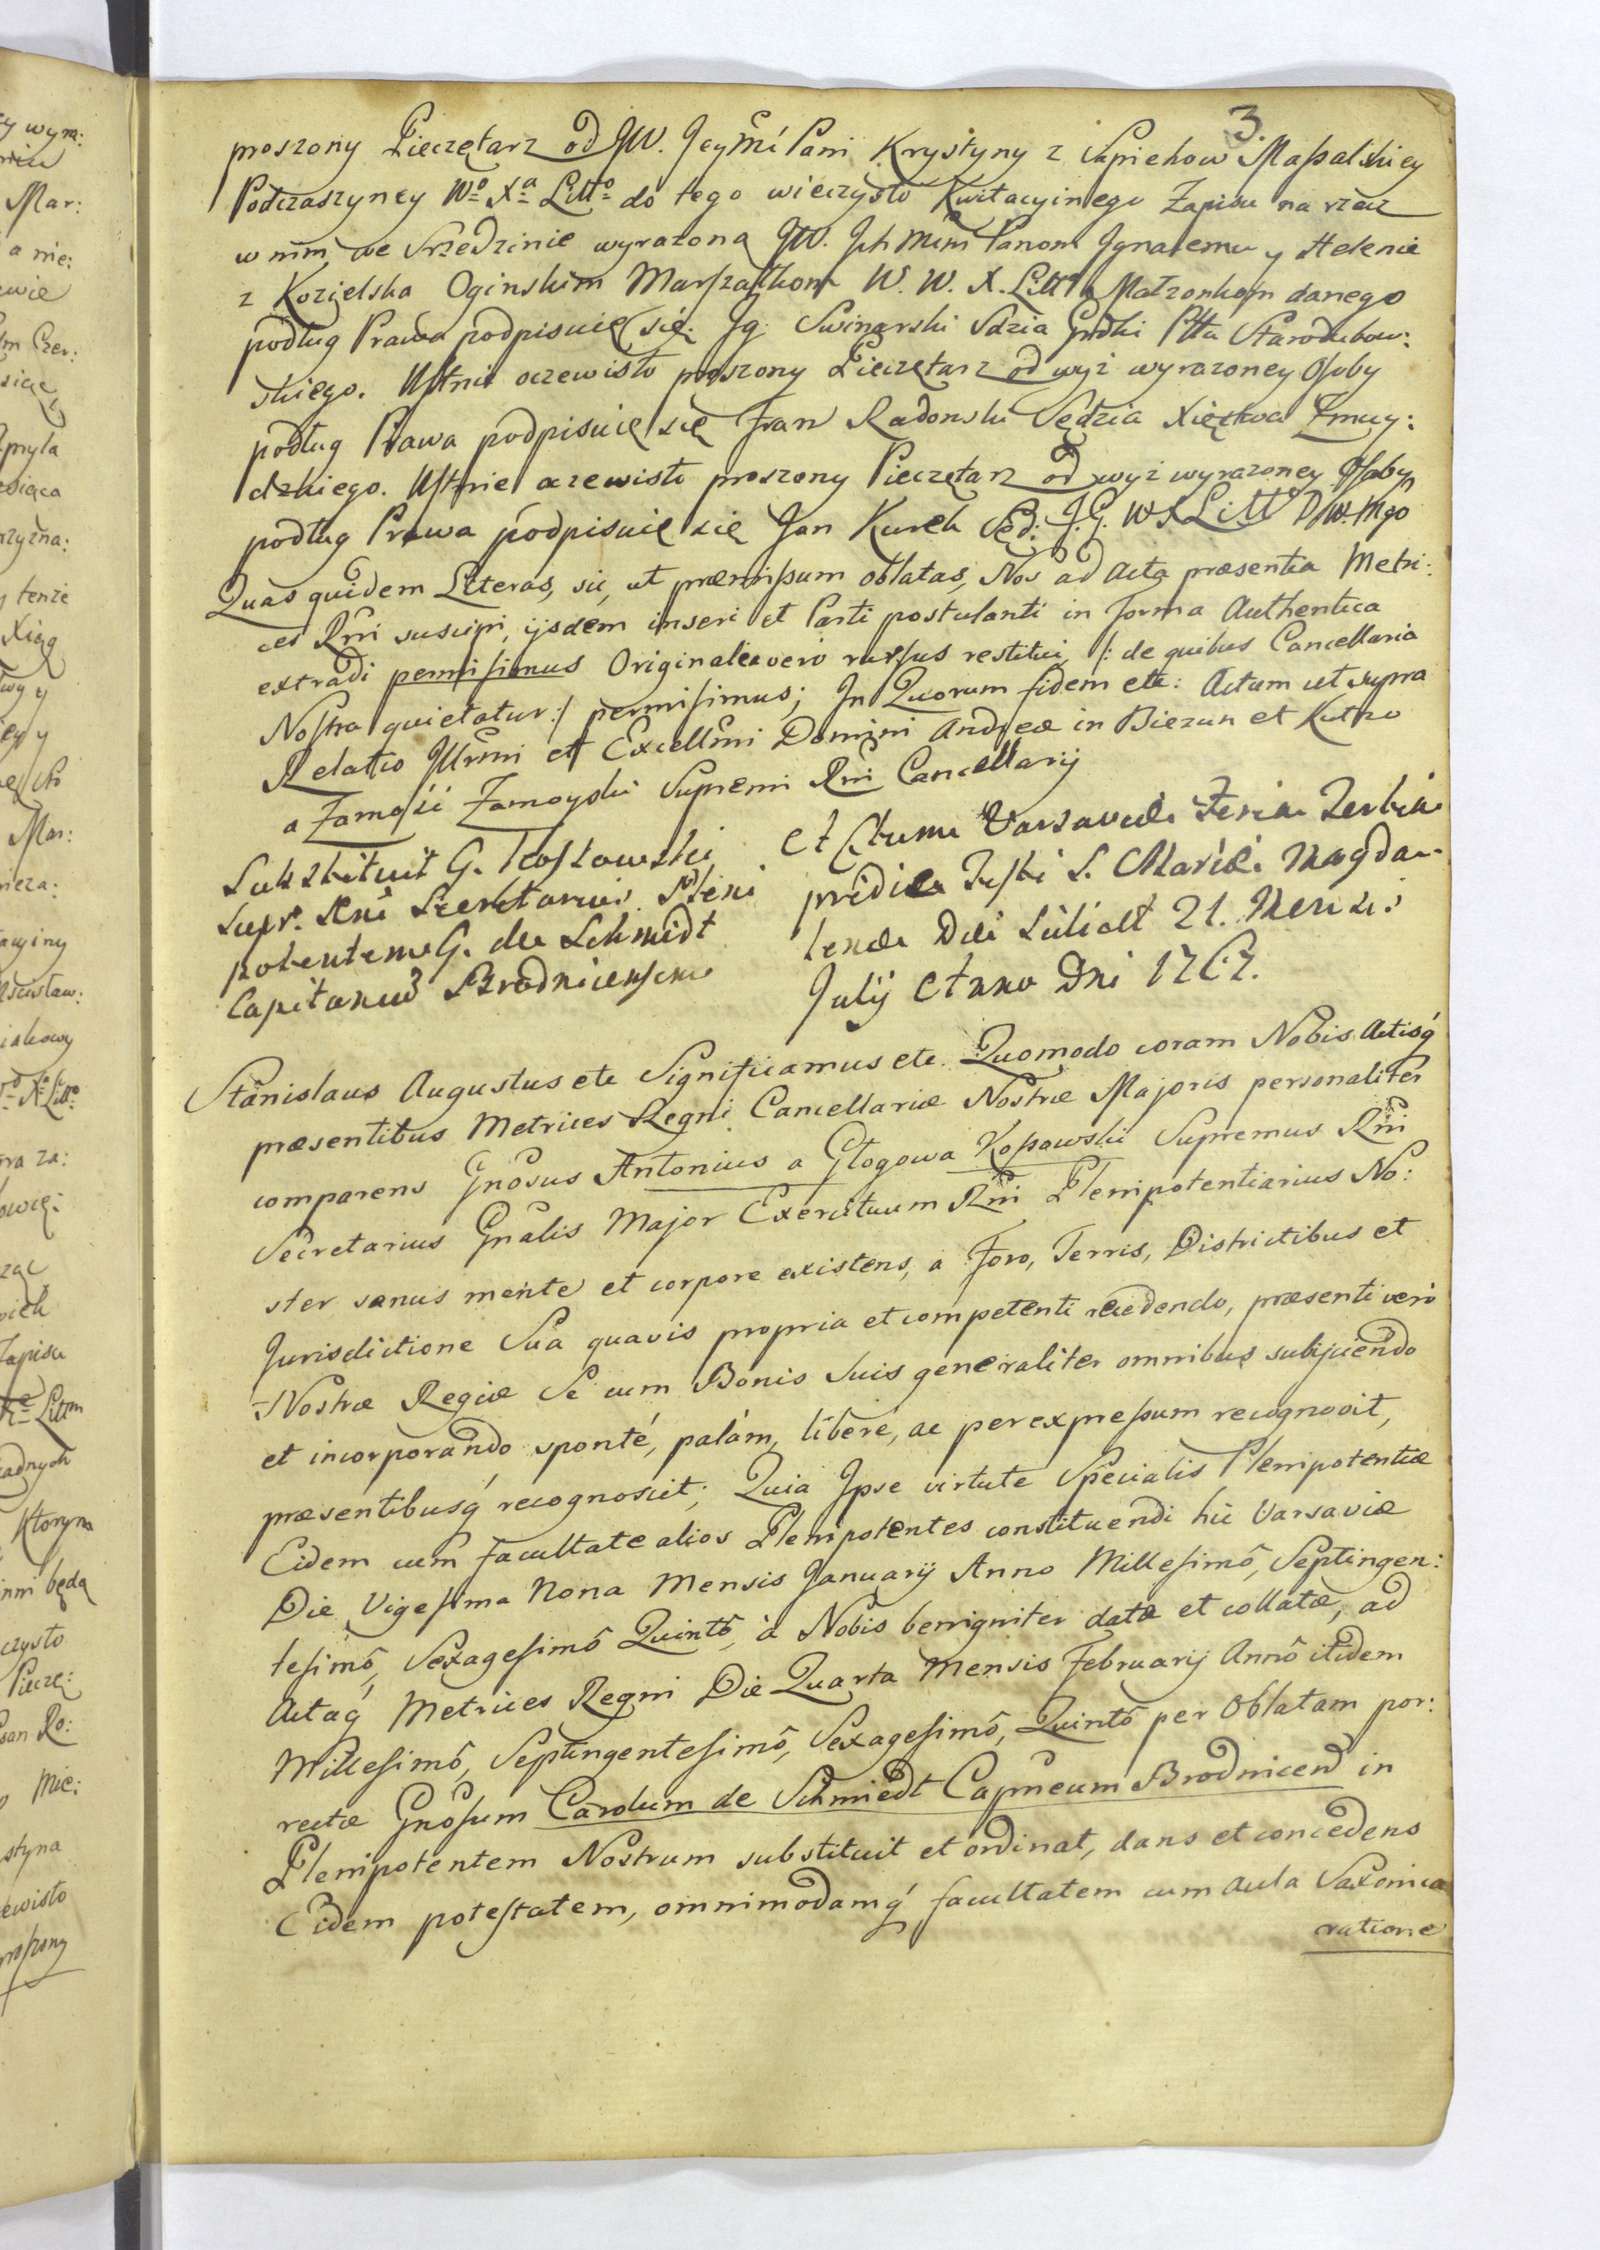 3.
proszony Pieczętarz od JW. Jeymći Pani Krystyny z Sapiehow Maßalskiey
Podczaszyney Wº Xª Littº do tego wieczysto Kwitacyinego Zapisu na rzecz
w nim we Srzedzinie wyrażoną JW. Ich Mćm Panom Ignacemu y Helenie
z Kozielska Oginskim Marszałkom W. W. X. Littº Małżonkom danego
podług Prawa podpisuię się. Jg: Swinarski Sdzia Grdzki Pttu Starodubow:
skiego. Ustnie oczewisto proszony Pieczętarz od wyż wyrażoney Osoby
podług Prawa podpisuię się Jran Radonski Sędzia Xięstwa Żmuy:
dzkiego. Ustnie oczewisto proszony Pieczętarz od wyż wyrażoney Osoby
podług Prawa podpisuię się Jan Kurek Sęd: J. G. W X Litt
Quas quidem Literas, sic, ut præmißum oblatas, Nos ad Acta præsentia Metri:
ces Rni suscipi, ijsdem inseri et Parti postulanti in forma Authentica
extradi permisimus Originales vero rursus restitui /: de quibus Cancellaria
Nostra quietatur :/ permisimus; In Quorum fidem etc: Actum ut supra
Relatio Illrmi et Excellmi Domini Andreæ in Biezun et Kutno
a Zamość Zamoyski Supremi Rni Cancellarij
Substituit G. Kossowski
Supr. Rni Secretarius Pleni
potentem G. de Schmidt
Capitaneum Brodnicensem
Actum Varsaviæ Feria Tertia
pridie Festi S. Mariæ Magda-
lenæ Die scilicet 21. Mensis
Julij Anno Dni 1767.
Stanislaus Augustus etc Significamus etc Quomodo coram Nobis Actisq́
præsentibus Metrices Regni Cancellariæ Nostræ Majoris personaliter
comparens Gnosus Antonius a Głogowa Koßowski Supremus Rni
Secretarius Gnalis Major Exercituum Rni Plenipotentiarius No:
ster sanus mente et corpore existens, a Foro, Terris, Districtibus et
Jurisdictione Sua quavis propria et competenti recedendo, præsenti vero
Nostræ Regiæ Se cum Bonis Suis generaliter omnibus subijciendo
et incorporando sponté, palám, liberé, ac per expreßum recognovit,
præsentibusq́ recognoscit; Quia Ipse virtute Specialis Plenipotentiæ
Eidem cum facultate alios Plenipotentes constituendi hic Varsaviæ
Die Vigesima Nona Mensis Januarij Anno Millesimô, Septingen:
tesimô, Sexagesimô Quintô, à Nobis benigniter datæ et collatæ, ad
Actaq́ Metrices Regni Die Quarta Mensis Februarij Annô itidem
Millesimô, Septingentesimô, Sexagesimô, Quintô per Oblatam por:
rectæ Gnosum Carolum de Schmiedt Capneum Brodnicen in
Plenipotentem Nostrum substituit et ordinat, dans et concedens
Eidem potestatem, omnimodamq́ facultatem cum Aula Saxonica
ratione